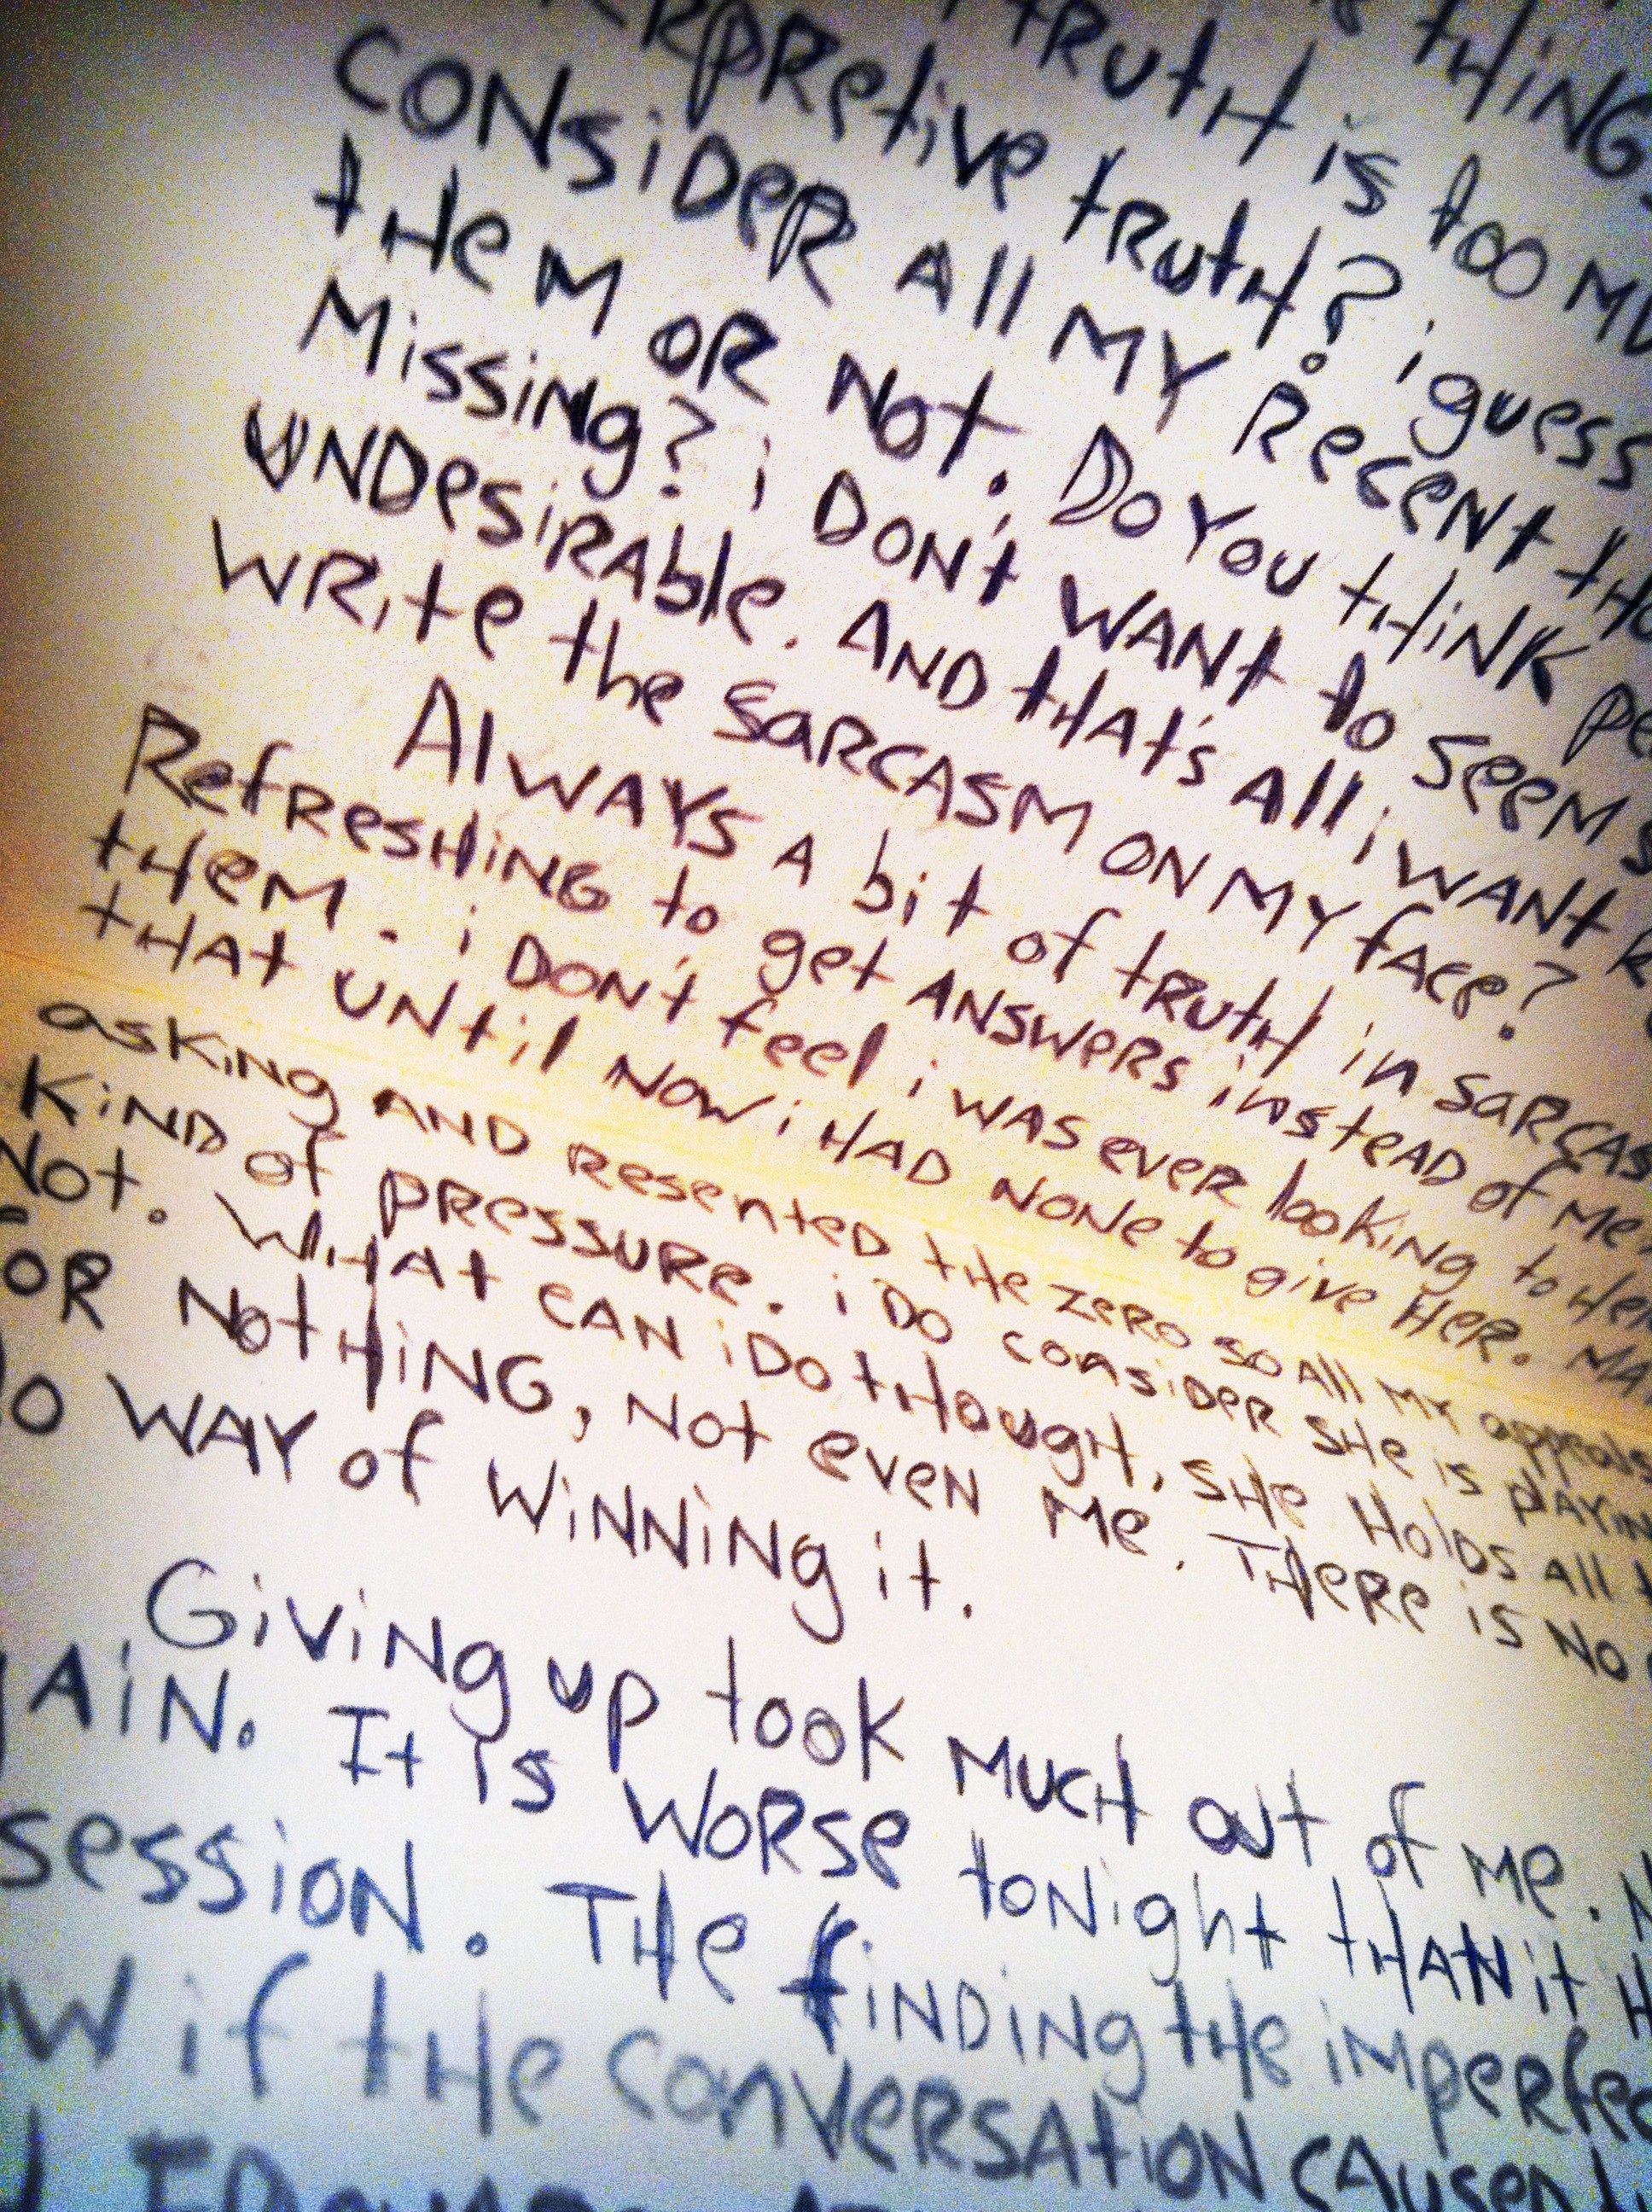 tHiNG
tRUtH is too MU
RpRetive tRUtH? i guess
CONSiDeR All MY ReceNt tHo
tHeM OR Not. Do You tHiNK pe
Missing? i DON't WANt to seeM s
UNDesiRable. AND tHAt's All i WANt k
WRite the SaRCASM ON MY fAce?
AlWAYS A bit of tRUtH in SaRCAS
RefResHiNG to get ANSWeRs instEAD of Me
tHeM. i DON't feel i WAS eveR looKiNG to HeR
tHAt UNtil NoW i HAD NONe to give HeR. MA
asKing AND ReseNteD tHe ZeRO so All MY appeals
KiND of pRessURe. i DO consiDeR SHe is plAYiN
Not. WHAt CAN i DO tHougH, SHe HolDs All t
OR NotHiNG, Not eveN Me. THeRe is No
O WAY of WiNNiNg it.
GiviNg up tooK MucH out of Me. N
AiN. It is WoRse toNight tHAN it H
sessioN. THe fiNDiNg tHe iMpeRfec
W if tHe conveRsAtioN CAuseD